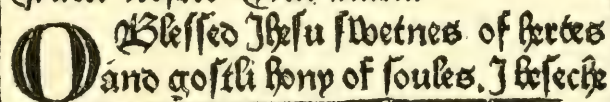 O Blessed Jhesu swetnes of hertes
and gostli hony of soules. I beseche